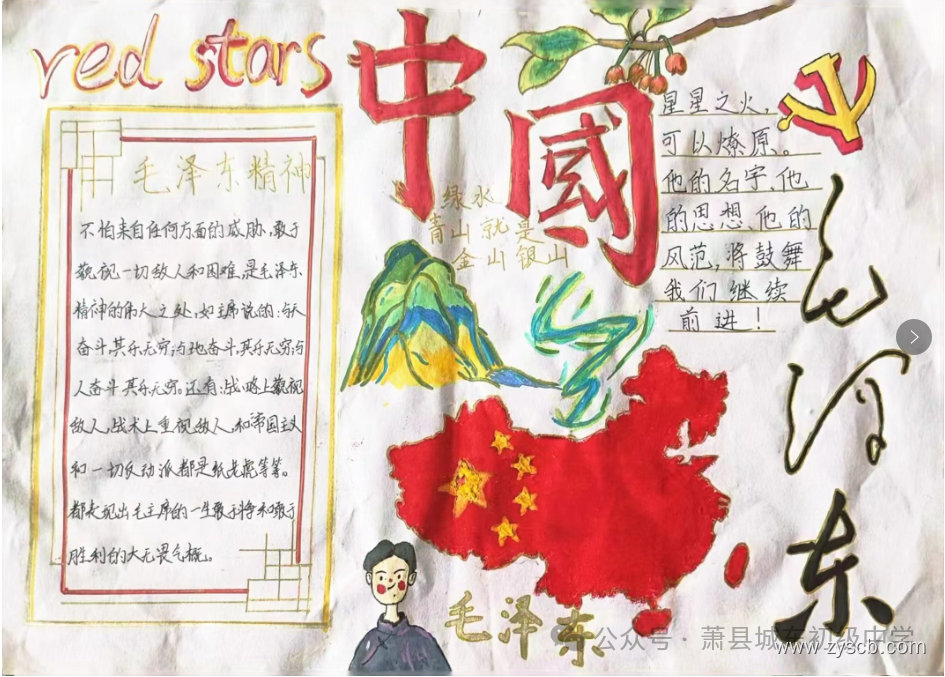 red stars
中國
毛泽东精神
不怕来自任何方面的威胁,敢于
藐视一切敌人和困难,是毛泽东
精神的伟大之处,如主席说的:与天
奋斗,其乐无穷;与地奋斗,其乐无穷;与
人奋斗其乐无穷。还有:战略上藐视
敌人,战术上重视敌人,和帝国主义
和一切反动派都是纸老虎等等。
都表现出毛主席的一生敢于斗争和敢于
胜利的大无畏气概。
绿水
青山就是
金山银山
星星之火,
可以燎原。
他的名字、他
的思想、他的
风范,将鼓舞
我们继续
前进!
毛泽东
毛泽东
公众号·萧县城东初级中学
www.zyscb.com